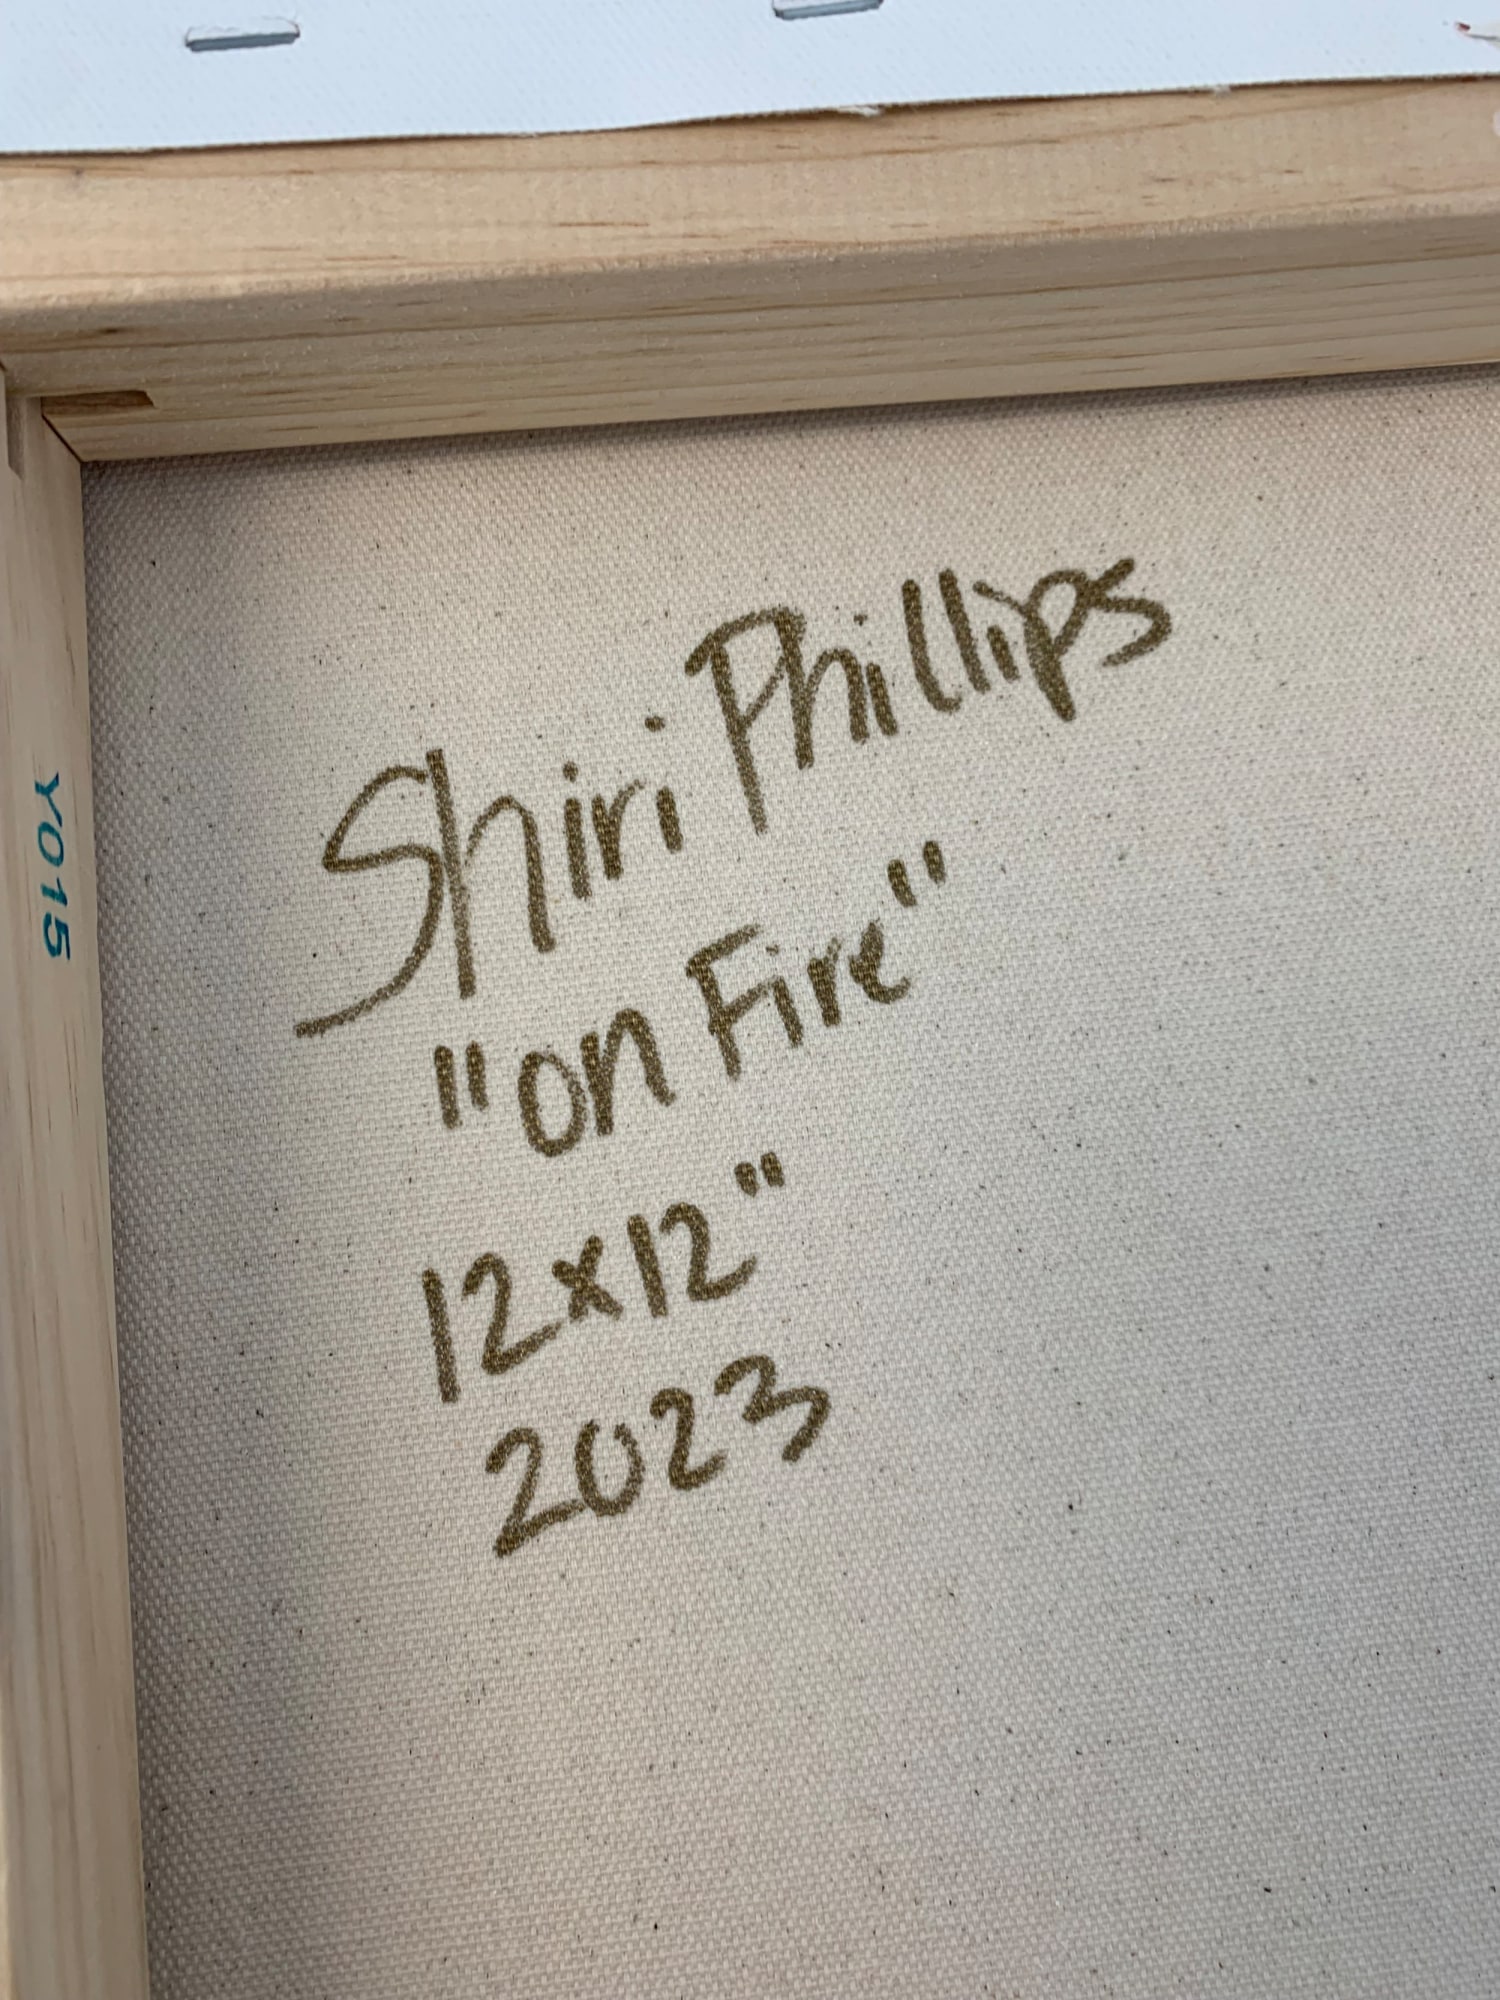 Shiri Phillips
"on Fire"
12x12"
2023
Y015